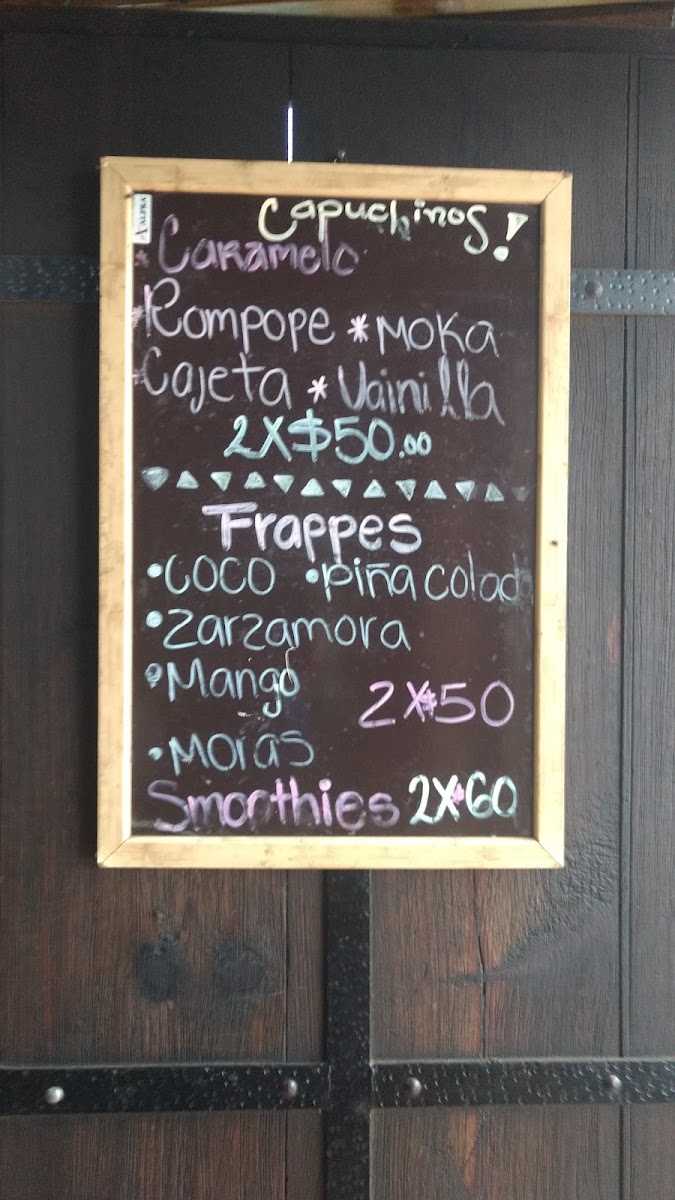 ALPHA
Capuchinos!
* Caramelo
* Rompope * MOKA
* Cajeta * Vainilla
2X$50.00
Frappes
• COCO • Piña colada
• Zarzamora
• Mango
2X$50
• MORAS
Smoothies 2X$60